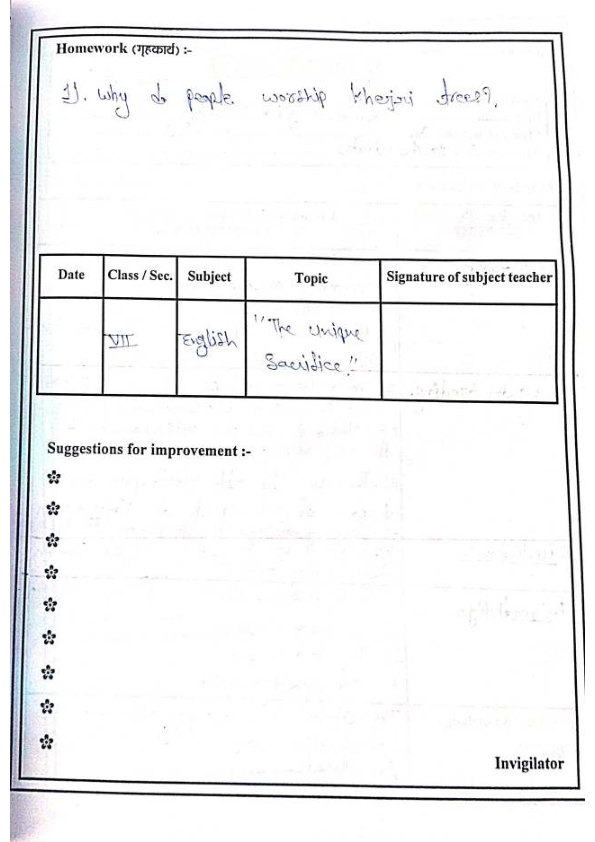 Homework (गृहकार्य) :-
1). Why do people worship khejari trees?
Date Class / Sec. Subject Topic Signature of subject teacher
VII English "The unique
Sacrifice."
Suggestions for improvement :-
Invigilator